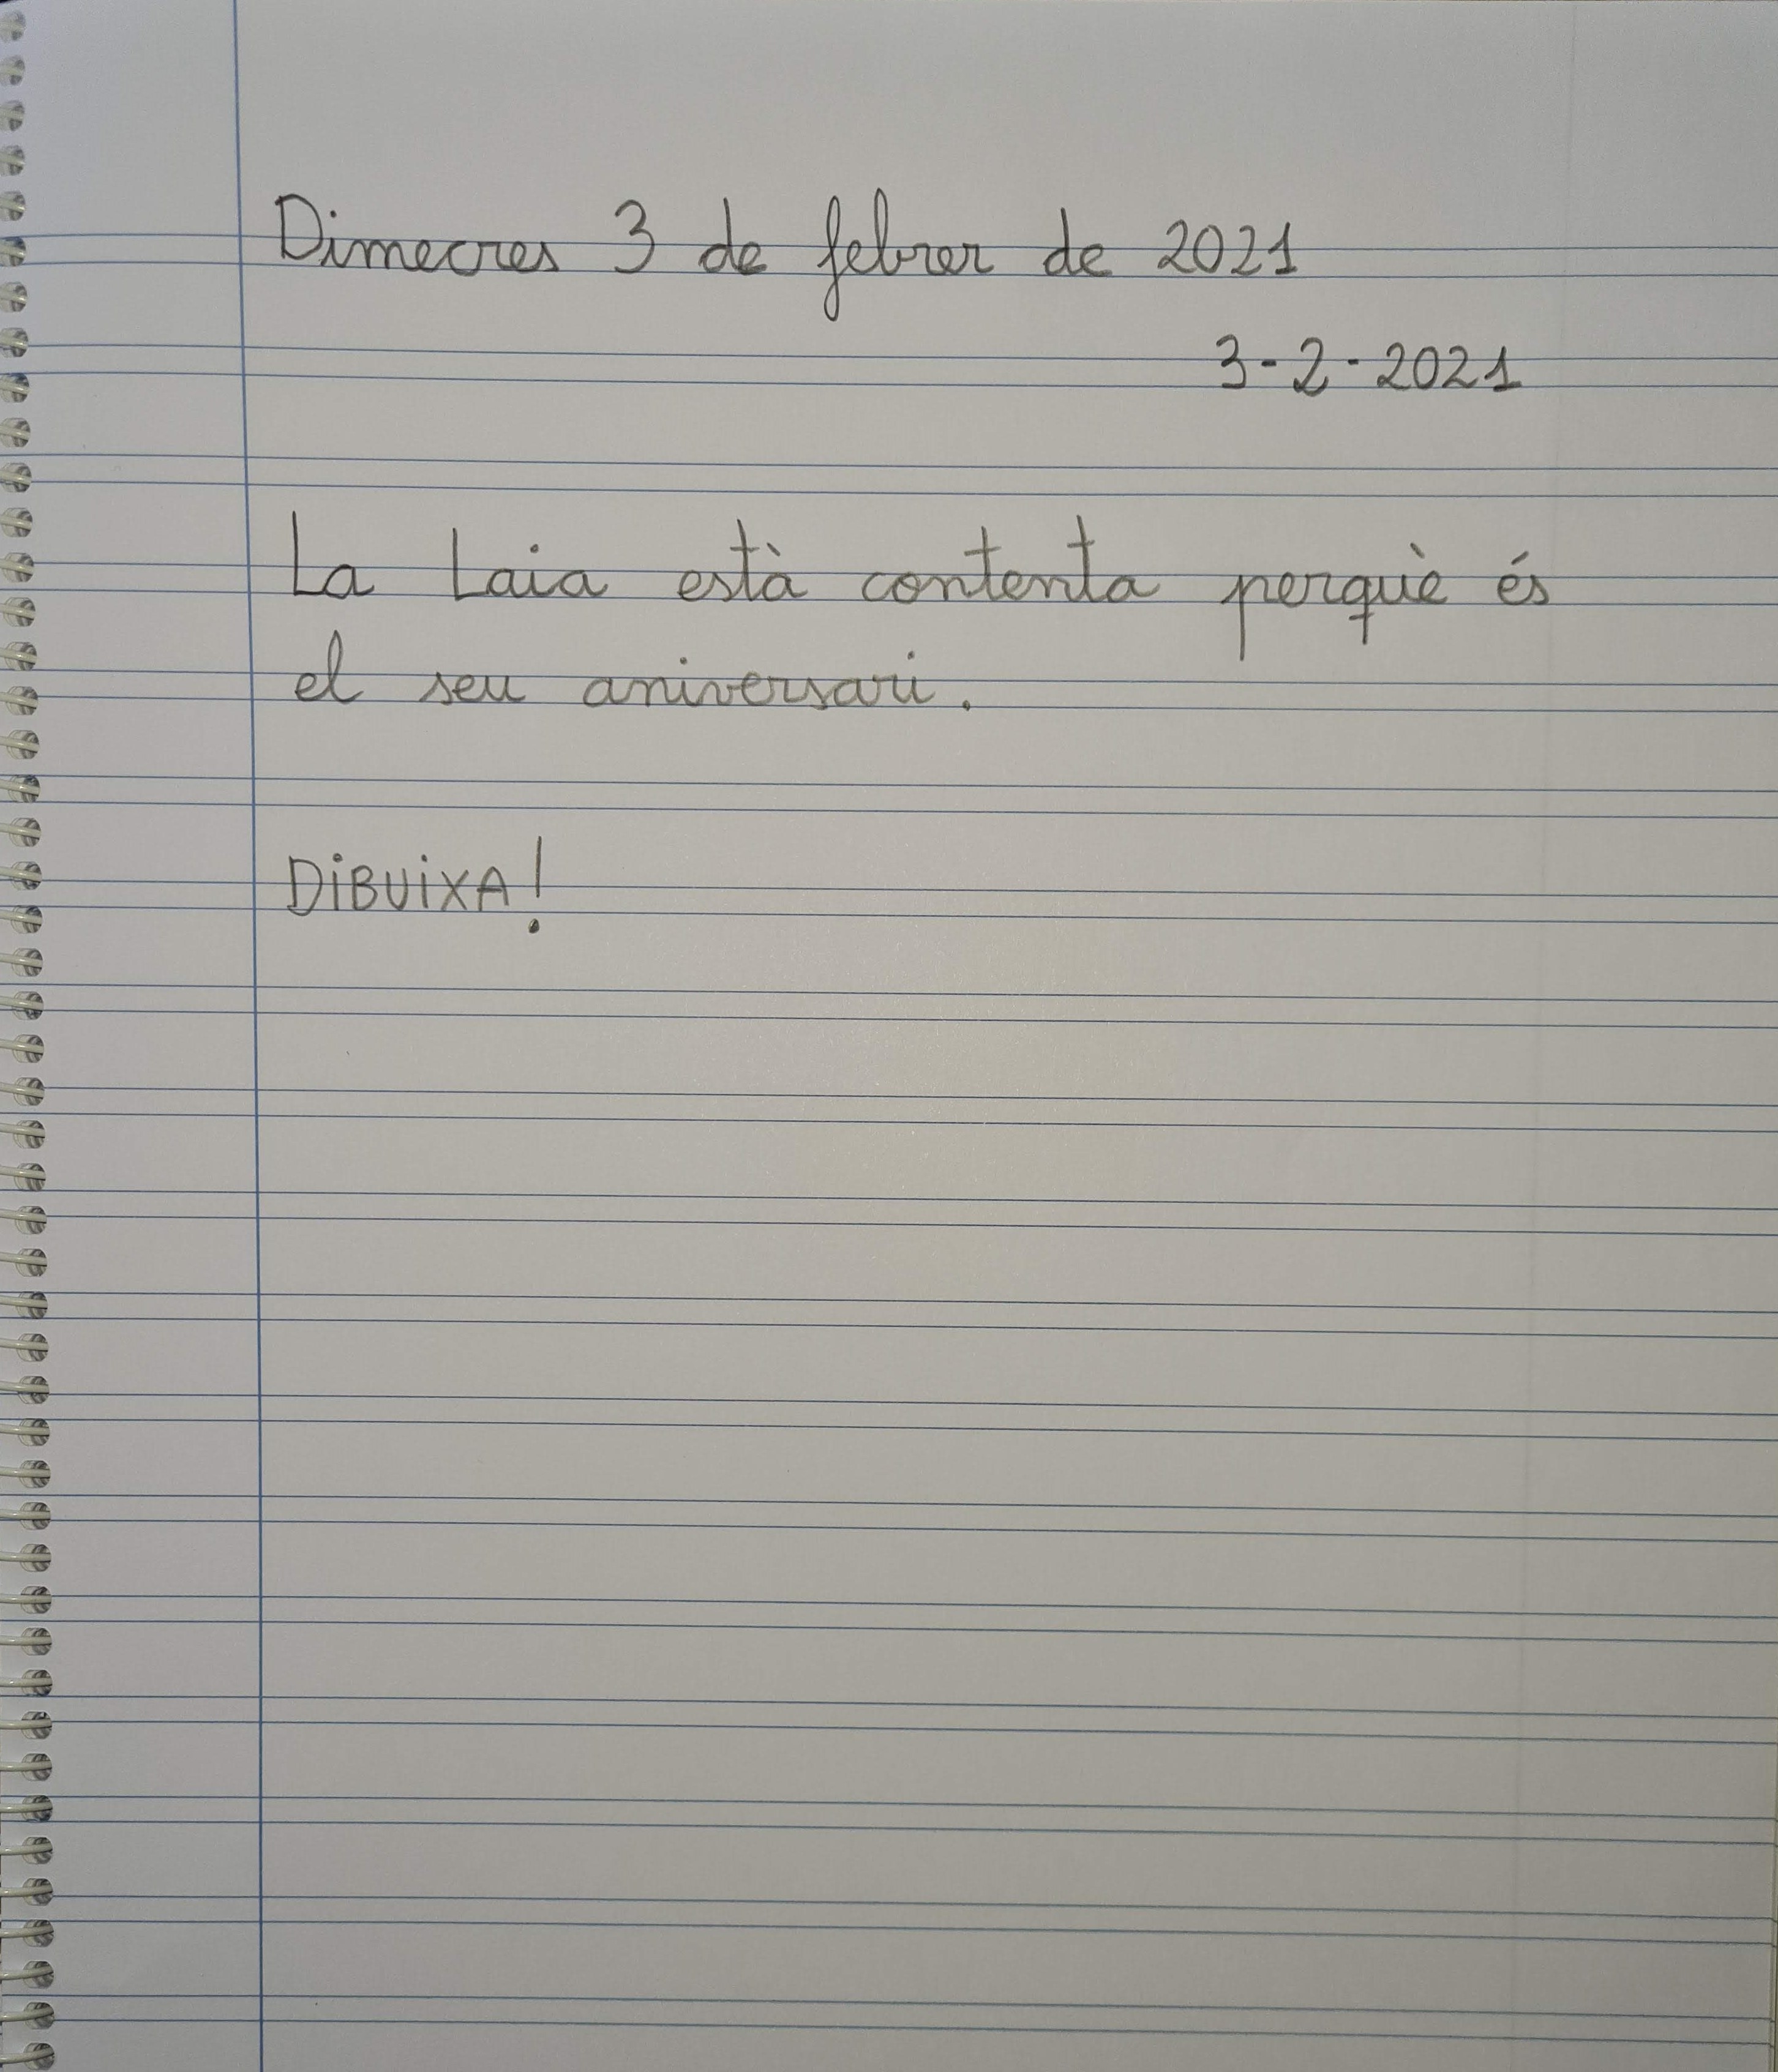 Dimecres 3 de febrer de 2021
3-2-2021
La Laia està contenta perquè és
el seu aniversari.
DiBUiXA!